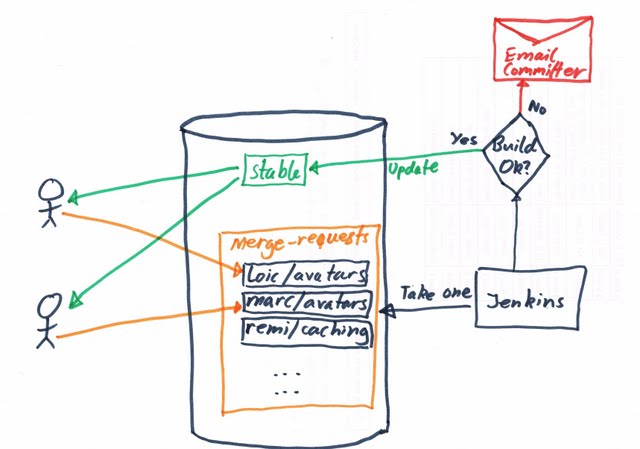 Email
Committer
No
Yes
Build
Ok?
stable
Update
Merge-requests
loic/avatars
marc/avatars
remi/caching
...
...
Take one
Jenkins